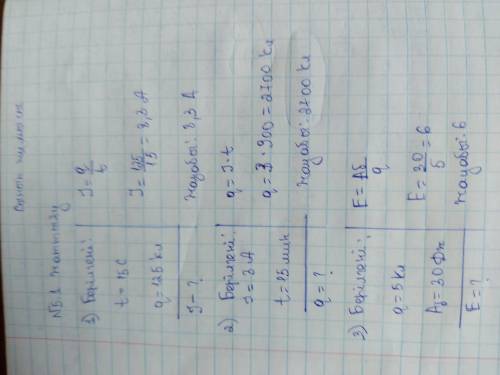 Сынып жұмысы
№5.1 Жаттығу
1) Берілгені:
t = 15 С
q = 125 кл
I - ?
I = q/t
I = 125/15 = 8,3 А
Жауабы: 8,3 А
2) Берілгені:
I = 3 А
t = 15 мин
q = ?
q = I · t
q = 3 · 900 = 2700 Кл
Жауабы: 2700 Кл
3) Берілгені:
q = 5 Кл
Aб = 30 Дж
E = ?
E = Aб/q
E = 30/5 = 6
Жауабы: 6